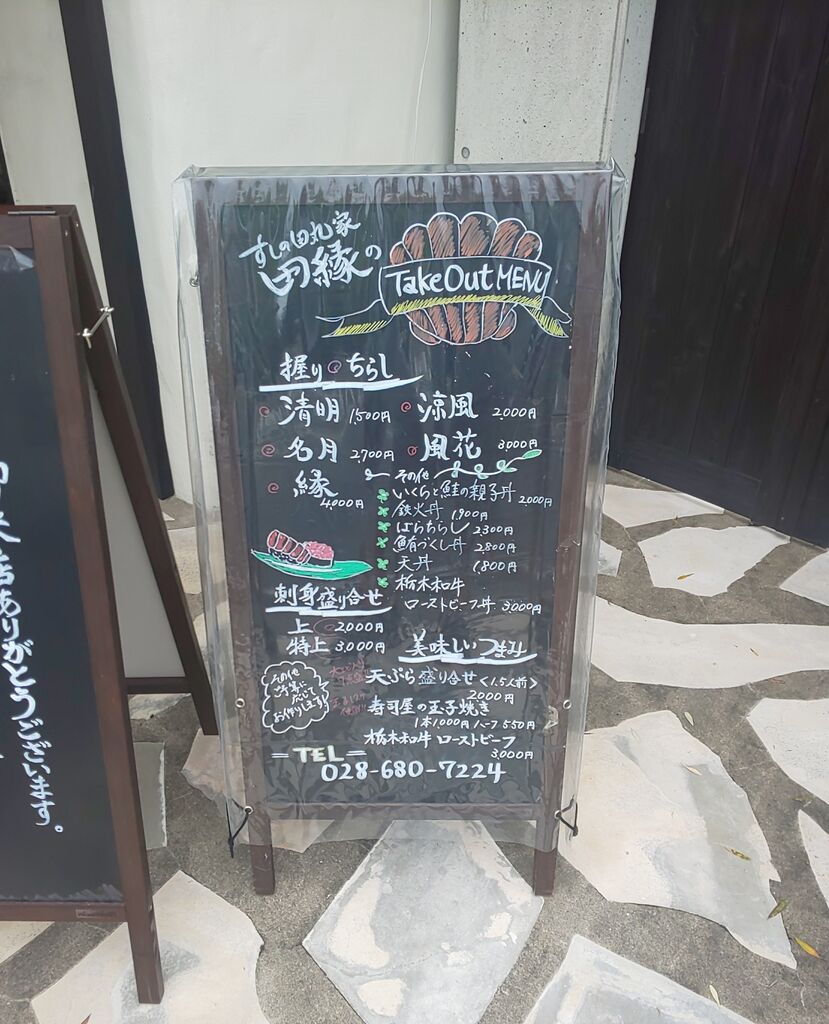 すしの田丸家
田縁の
TakeOut MENU
握り ちらし
清明 1,500円
涼風 2,000円
名月 2,700円
風花 3,000円
縁 4,000円
その他
いくらと鮭の親子丼 2,000円
鉄火丼 1,900円
ばらちらし 2300円
鮪づくし丼 2800円
天丼 1,800円
栃木和牛
ローストビーフ丼 3,000円
刺身盛り合せ
上 2,000円
特上 3,000円
その他
ご予算に
応じて
お作りします!
美味しいつまみ
天ぷら盛り合せ<1.5人前>
2000円
寿司屋の玉子焼き
1本1,000円 ハーフ550円
栃木和牛ローストビーフ
3,000円
=TEL=
028-680-7224
来店ありがとうございます。